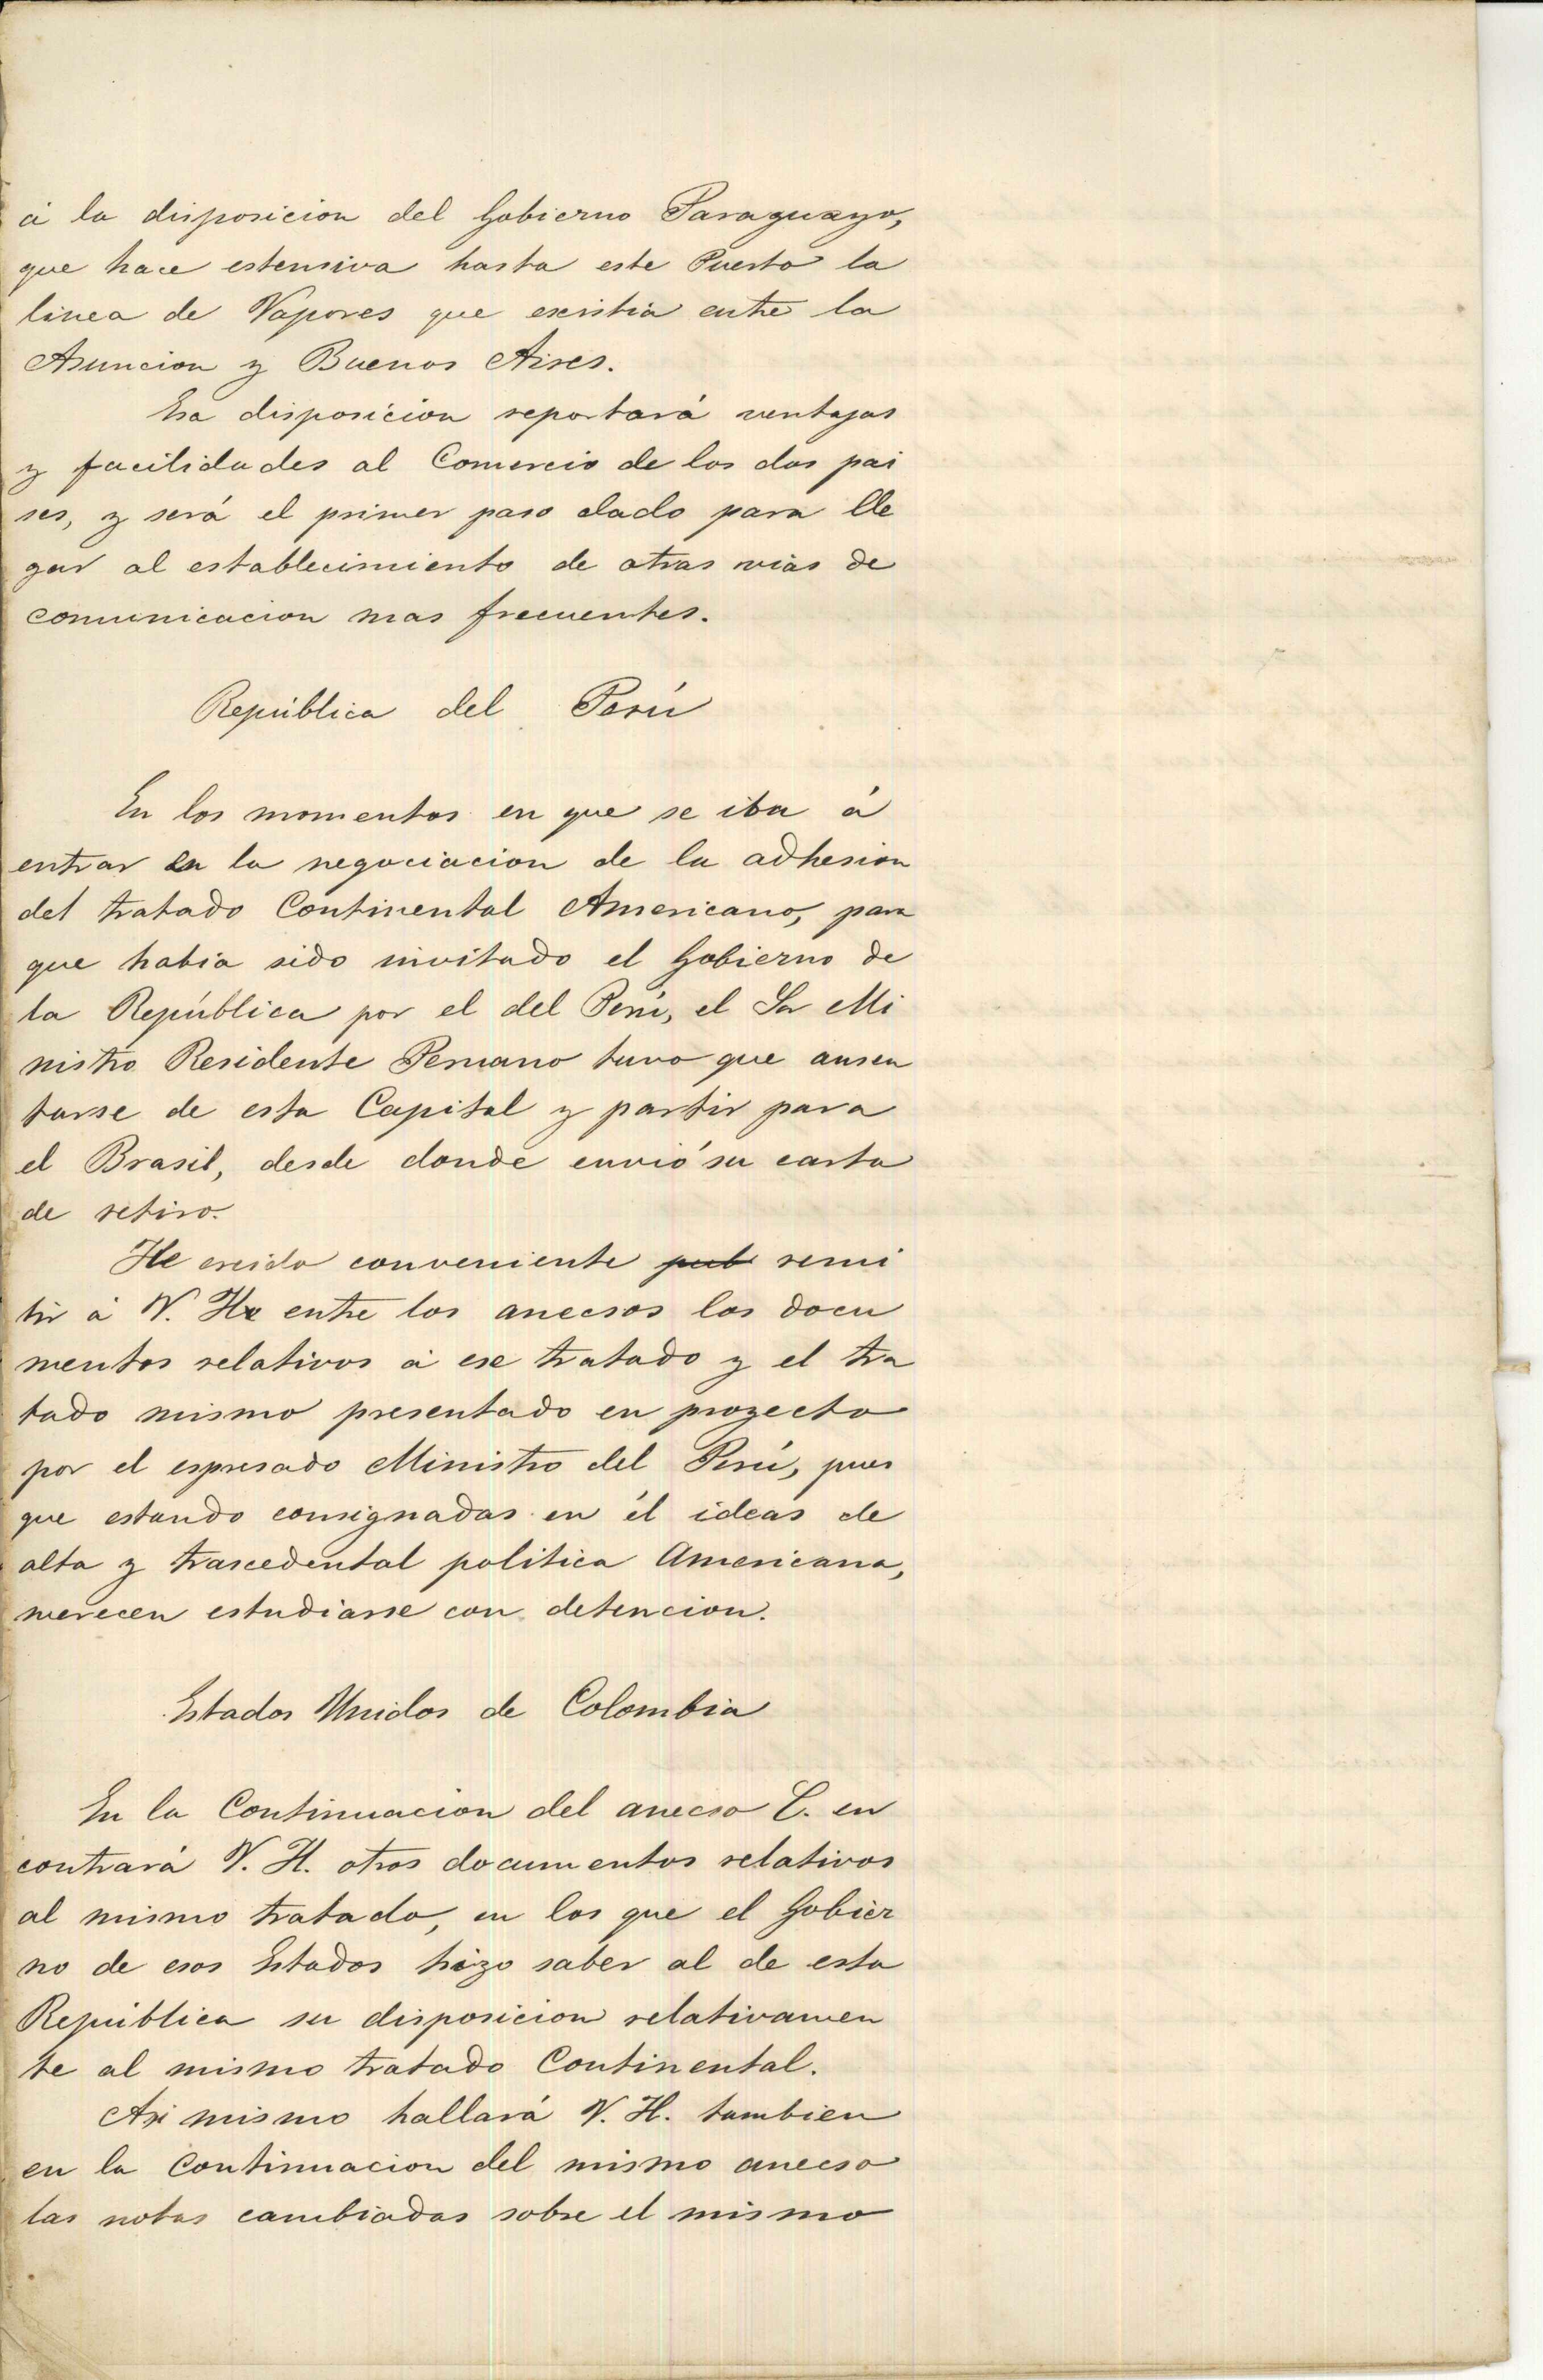 á la disposicion del Gobierno Paraguayo,
que hace estensiva hasta este Puerto la
linea de Vapores que existia entre la
Asuncion y Buenos Aires.
Esa disposicion reportará ventajas
y facilidades al Comercio de los dos pai
ses, y será el primer paso dado para lle
gar al establecimiento de otras vias de
comunicacion mas frecuentes.
República del Perú
En los momentos en que se iba á
entrar en la negociacion de la adhesion
del tratado Continental Americano, para
que habia sido invitado el Gobierno de
la República por el del Perú, el Sr Mi
nistro Residente Peruano tuvo que ausen
tarse de esta Capital y partir para
el Brasil, desde donde envió su carta
de retiro.
He creido conveniente pub remi
tir á V. H. entre los anecsos los docu
mentos relativos á ese tratado y el tra
tado mismo presentado en proyecto
por el espresado Ministro del Perú, pues
que estando consignadas en él ideas de
alta y trascedental politica Americana,
merecen estudiarse con detencion.
Estados Unidos de Colombia
En la Continuacion del anecso C. en
contrará V. H. otros documentos relativos
al mismo tratado, en los que el Gobier
no de esos Estados hizo saber al de esta
República su disposicion relativamen
te al mismo tratado Continental.
Asi mismo hallará V. H. tambien
en la Continuacion del mismo anecso
las notas cambiadas sobre el mismo